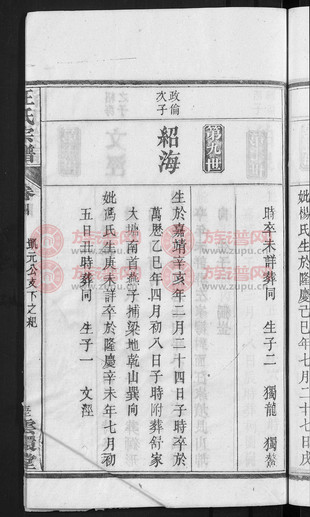 妣楊氏生於萬曆己巳年七月二十七日戌
時卒未詳葬同　生子二　獨龍　獨鰲
第九世
政倫次子
紹海
生於嘉靖辛亥年二月二十四日子時卒於
萬曆乙巳年四月初八日子時附葬舒家
大地南首燕子捕梁地乾山巽向
妣馮氏生庚未詳卒於隆慶辛未年七月初
五日丑時葬同　生子一　文涇
王氏宗譜
凱元公支下之杞
族譜网
www.zupu.cn